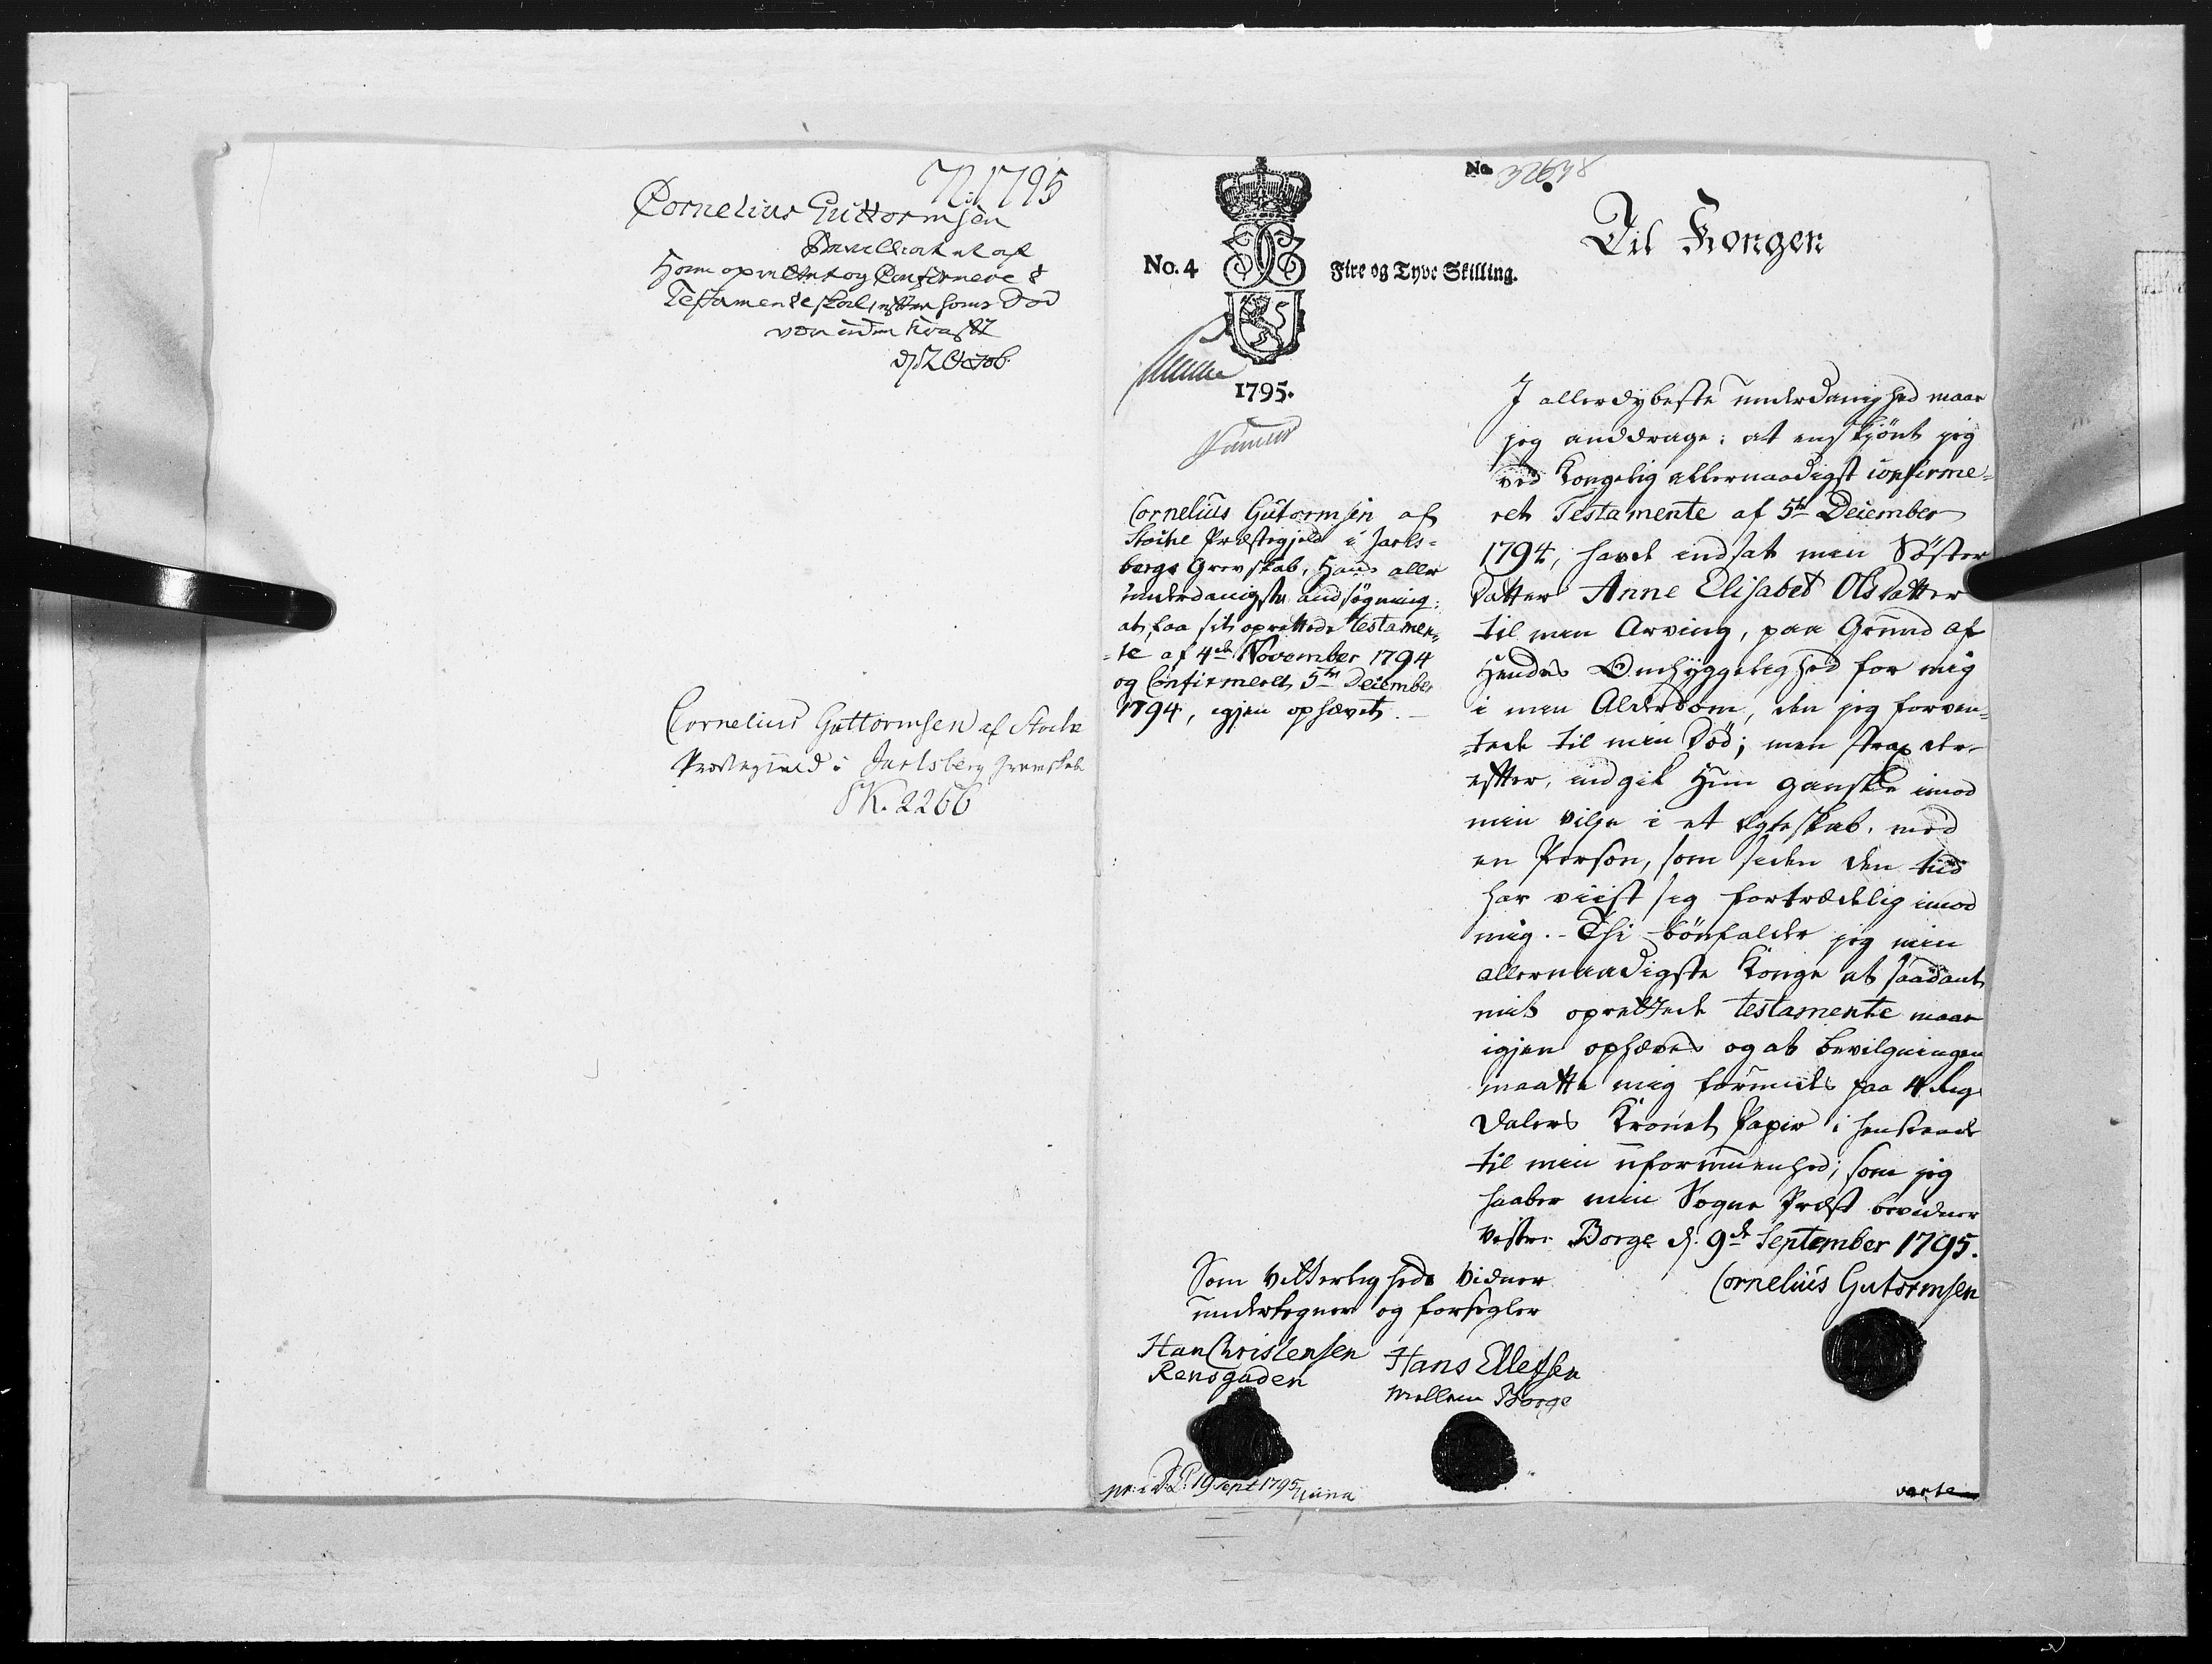 N. 1795
Cornelius Guttormsen
Bevilling at et af
Ham oprettet og Confirmeret
Testamente skal, efter hans Død
være uden Kraft
d. 2 Octob.
Cornelius Guttormsen af Stocke
Præstegield i Jarlsberg Grevskab
SK. 2266
No. 4
Fire og Tyve Skilling.
1795.
No.
Til Kongen
Cornelius Gutormsen af
Stocke Præstegjeld i Jarls-
bergs Grevskab, Hans aller
underdanigste andsøgning:
at faa sit oprettede Testamen-
-te af 4de November 1794
og Confirmeret 5te December
1794, igjen ophævet. –
I allerdybeste underdanighed maae
jeg anddrage: at endskjönt jeg
ved Kongelig allernaadigst confirme-
ret Testamente af 5te December
1794, havde indsat min Söster
Datter Anne Elisabet Olsdatter
til min Arving, paa Grund af
Hendes Omhyggelighed for mig
i min Alderdom, den jeg forven-
-tede til min Död; men strax der-
efter, indgik Hun ganske imod
min vilje i et Egteskab, med
en Person, som siden den tiid
har viist sig fortrædelig imod
mig. - Thi bönfalder jeg min
allernaadigste Konge at saadant
mit oprettede Testamente maae
igjen ophæves og at bevilgningen
maatte mig forundes paa 4 Rigs
Dalers Kronet Papir i henseende
til min uformuenhed; som jeg
haaber min Sogne Præst bevidner
Vestre Borge d. 9de September 1795.
Cornelius Gutormsen
Som Vitterligheds Vidner
undertegner og forsegler
Han Christensen
Rensgaden
Hans Ellefsen
Mellem Borge
19 Sept 1795
verte